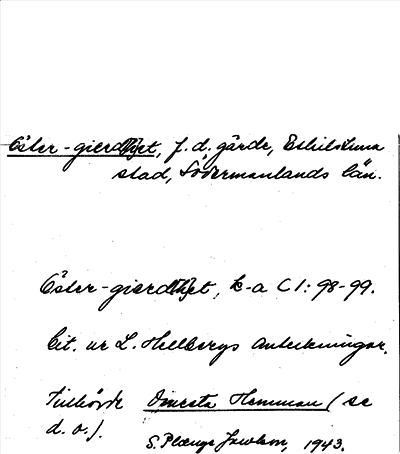 Öster-gierdhet, f.d. gärde, Eskilstuna
stad, Södermanlands län.
Öster-gierdhet, k-a C 1: 98-99.
Cit. ur L. Hellbergs anteckningar.
Tillhörde Hemman (se
d.o.).
S. 1943.